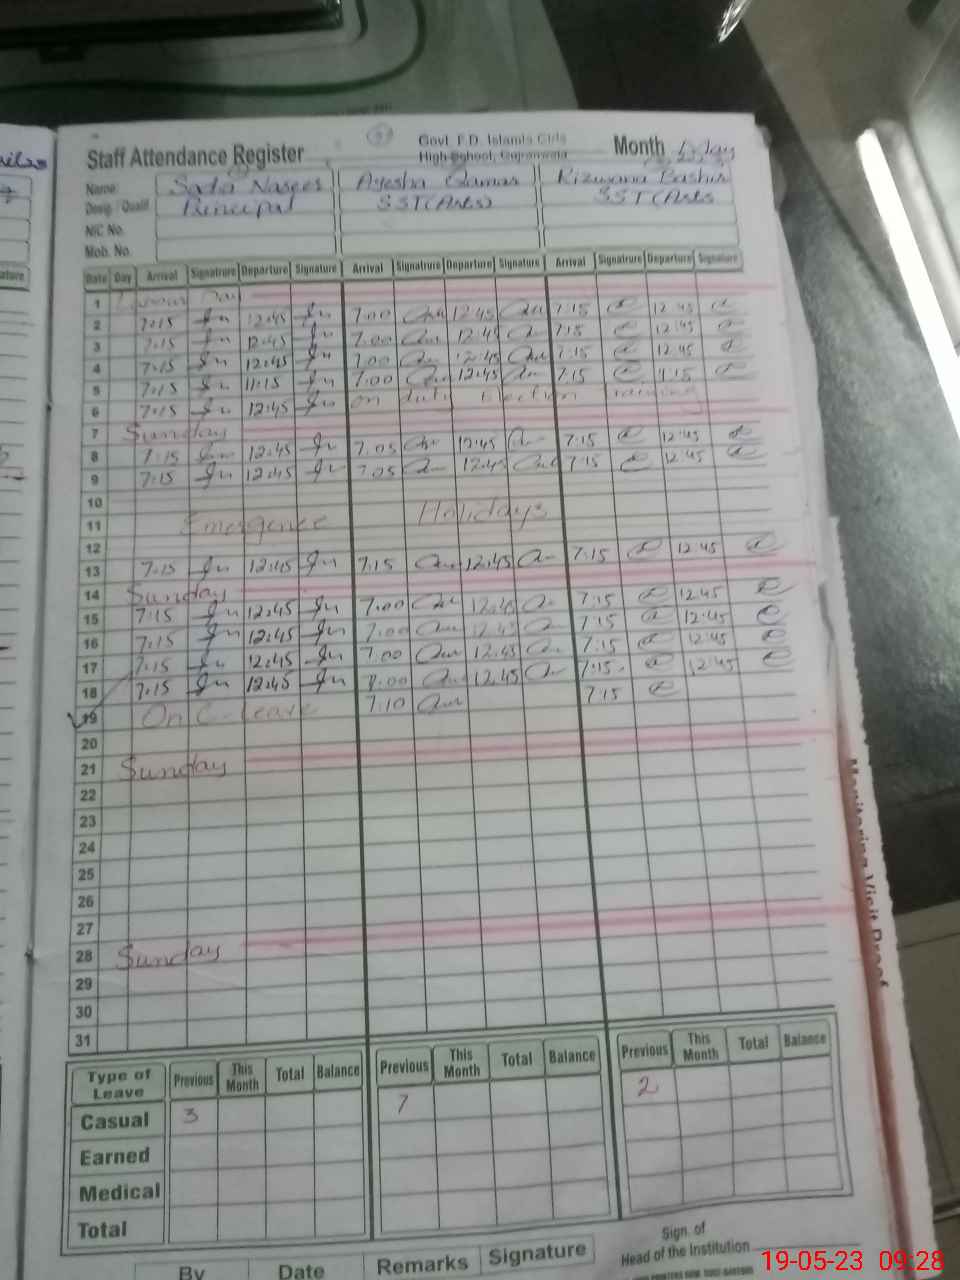 Govt F.D. Islamia Girls
Staff Attendance Register High School, Gujranwala Month May
Name Sadia Naseer Ayesha Qamar Rizwana Bashir
Desig. / Qualif Principal SST (Arts) SST (Arts
NIC No.
Mob. No.
Date Day Arrival Signatrure Departure Signature Arrival Signatrure Departure Signature Arrival Signatrure Departure Signature
1 Labour Day
2 7:15 12:45 7:00 12:45 7:15 12:45
3 7:15 12:45 7:00 12:45 7:15 12:45
4 7:15 12:45 7:00 12:45 7:15 12:45
5 7:15 11:15 7:00 12:45 7:15 11:15
6 7:15 12:45 on duty Election Training
7 Sunday
8 7:15 12:45 7:05 12:45 7:15 12:45
9 7:15 12:45 7:05 12:45 7:15 12:45
10
11 Emergence Holidays
12
13 7:15 12:45 7:15 12:45 7:15 12:45
14 Sunday
15 7:15 12:45 7:00 12:45 7:15 12:45
16 7:15 12:45 7:00 12:45 7:15 12:45
17 7:15 12:45 7:00 12:45 7:15 12:45
18 7:15 12:45 7:00 12:45 7:15 12:45
19 On C-Leave 7:10 7:15
20
21 Sunday
22
23
24
25
26
27
28 Sunday
29
30
31
Type of Leave Previous This Month Total Balance Previous This Month Total Balance Previous This Month Total Balance
Casual 3 7 2
Earned
Medical
Total
Sign. of
Head of the Institution
By Date Remarks Signature
Monitoring Visit Proof
19-05-23 09:28